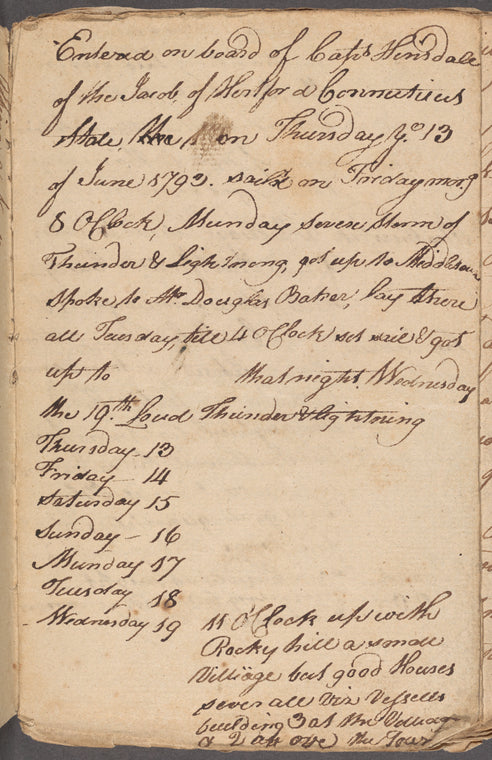 Entered on board of Capt Hinsdale
of the Jacob, of Hertford Connecticus
State, the on Thursday ye 13
of June 1793. sail'd on Friday morng
8 OClock, Munday severe storm of
Thunder & Lightnong, got up to Middleton
spoke to Mr Douglas Baker, lay there
all Tuesday, till 4 OClock set sail & got
up to that night. Wednesday
the 19.th Loud Thunder & Lightning
Thursday 13
Friday 14
Saturday 15
Sunday - 16
Munday 17
Tuesday 18
- Wednesday 19 11 O'Clock up with
Rocky hill a small
Villiage but good Houses
sever all Viz Vessells
building 3 at the Village
& 2 above the Town